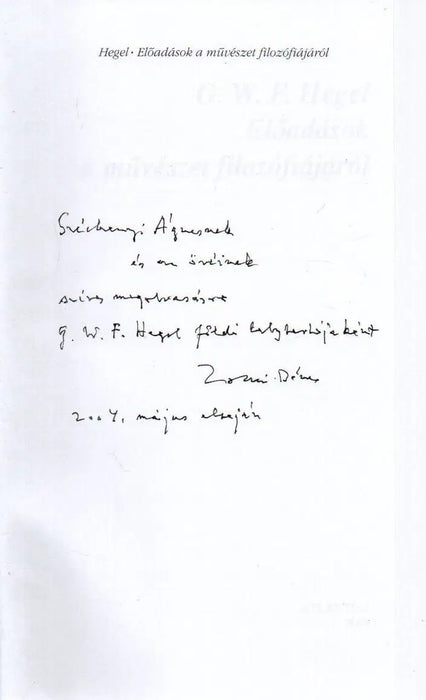 Hegel · Előadások a művészet filozófiájáról
G. W. F. Hegel
Előadások
a művészet filozófiájáról
Széchenyi Ágnesnek
és az övéinek
szíves megolvasásra
G. W. F. Hegel földi helytartójaként
Zoltai Dénes
2004. május elsején